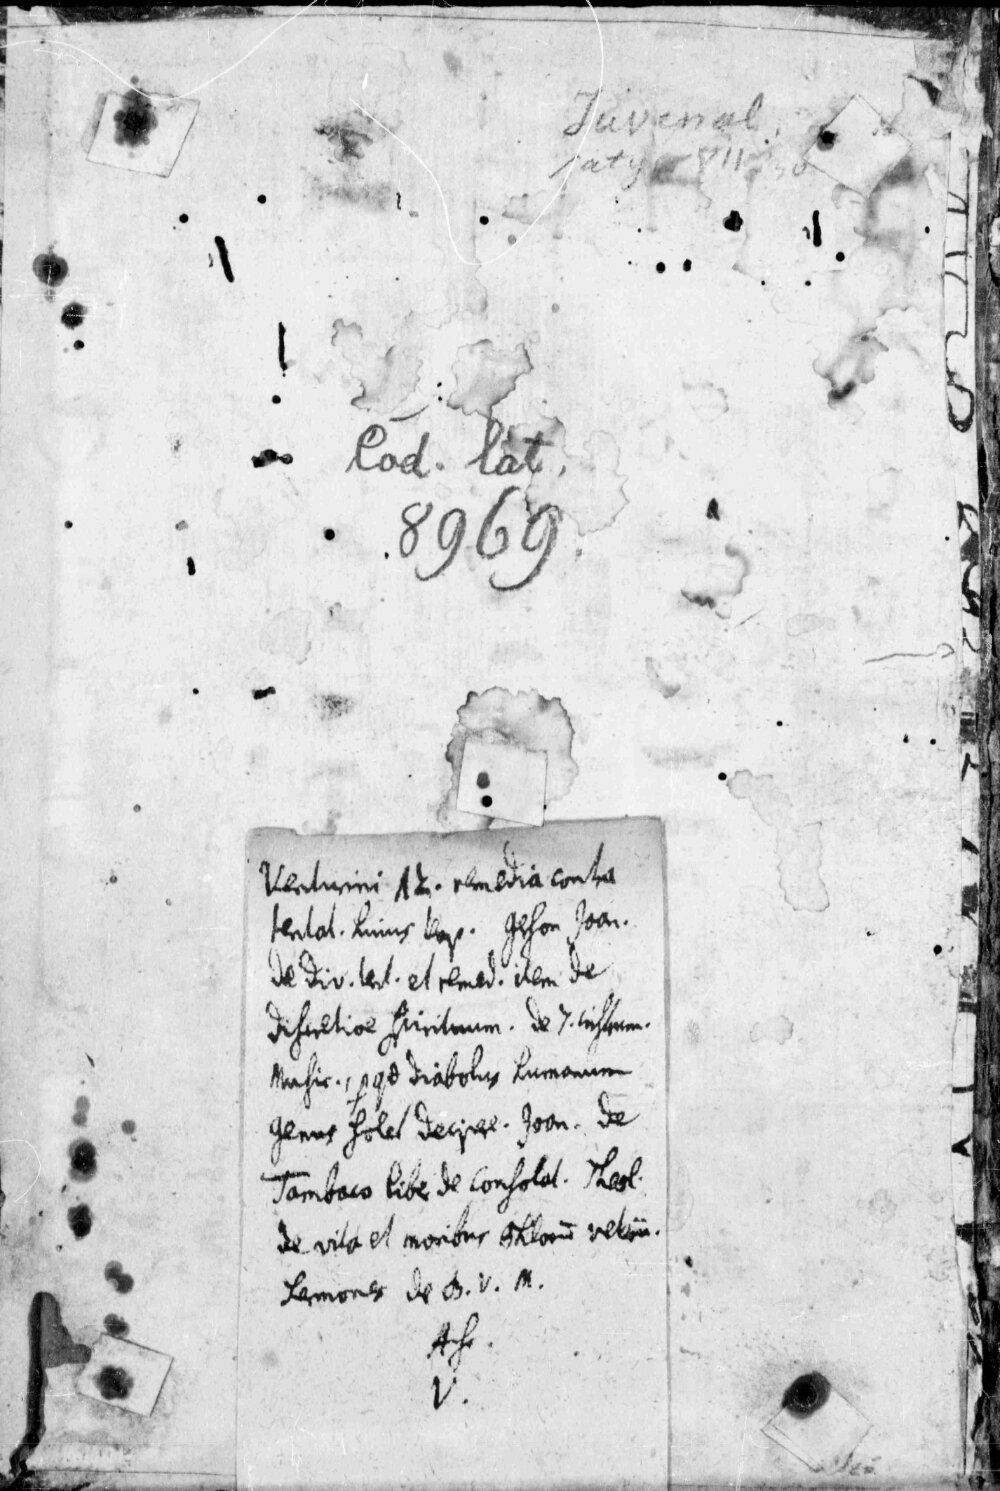 Juvenal.
saty VIII
Cod. lat.
8969.
Venturini 12. remedia contra
tentat. huius temp. Gerson Joan.
de div. tent. et remed. item de
discretioe spirituum. de 7. instrum.
Music., p qd diabolus humanum
genus solet decipere. Joan. de
Tambaco liber de consolat. Theol.
de vita et moribus veterū.
Sermones de B. V. M.
V.